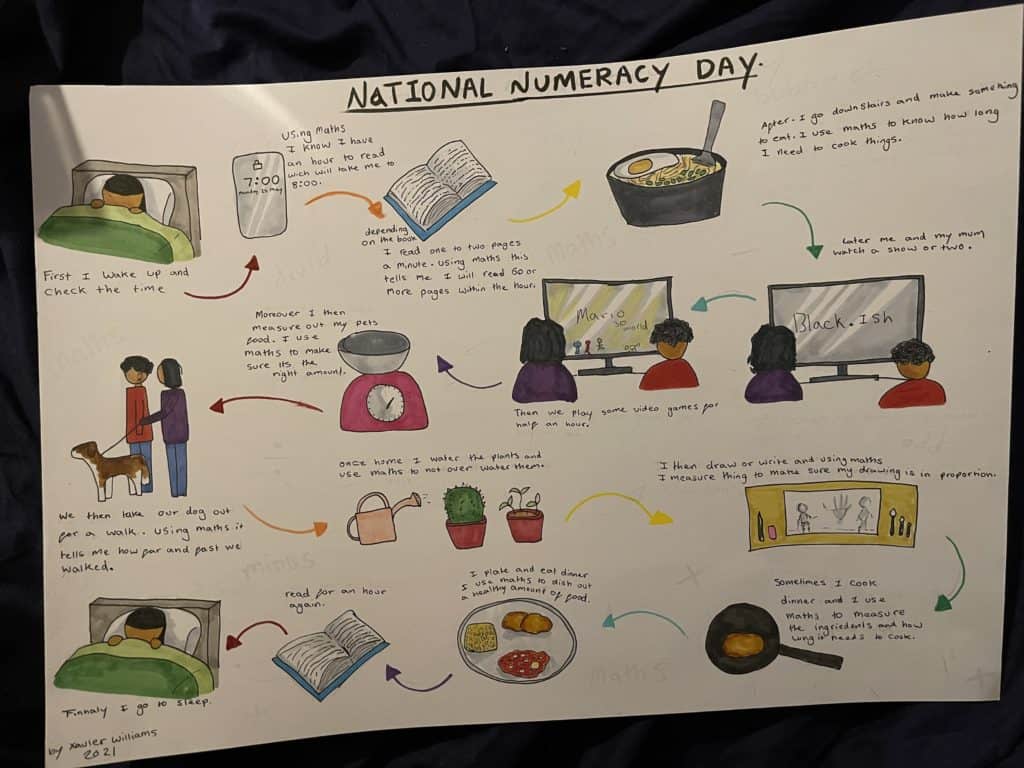 NaTIONAL NUMERACY DAY.
First I wake up and
check the time
7:00
Using Maths
I know I have
an hour to read
wich will take me to
8:00.
depending
on the book
I read one to two pages
a minute. Using maths this
tells me I will read 60 or
more pages within the hour.
After. I go downstairs and make something
to eat. I use maths to know how long
I need to cook things.
Later me and my mum
watch a show or two.
Black.Ish
Mario
3D
world
Then we play some video games for
half an hour.
Moreover I then
measure out my pets
food. I use
maths to make
sure its the
right amount.
We then take our dog out
for a walk. Using maths it
tells me how far and fast we
walked.
once home I water the plants and
use maths to not over water them.
I then draw or write and using maths
I measure thing to make sure my drawing is in proportion.
Sometimes I cook
dinner and I use
maths to measure
the ingredients and how
long it needs to cook.
I plate and eat dinner
I use maths to dish out
a healthy amount of food.
read for an hour
again.
Finnaly I go to sleep.
by Xavier Williams
2021
Maths